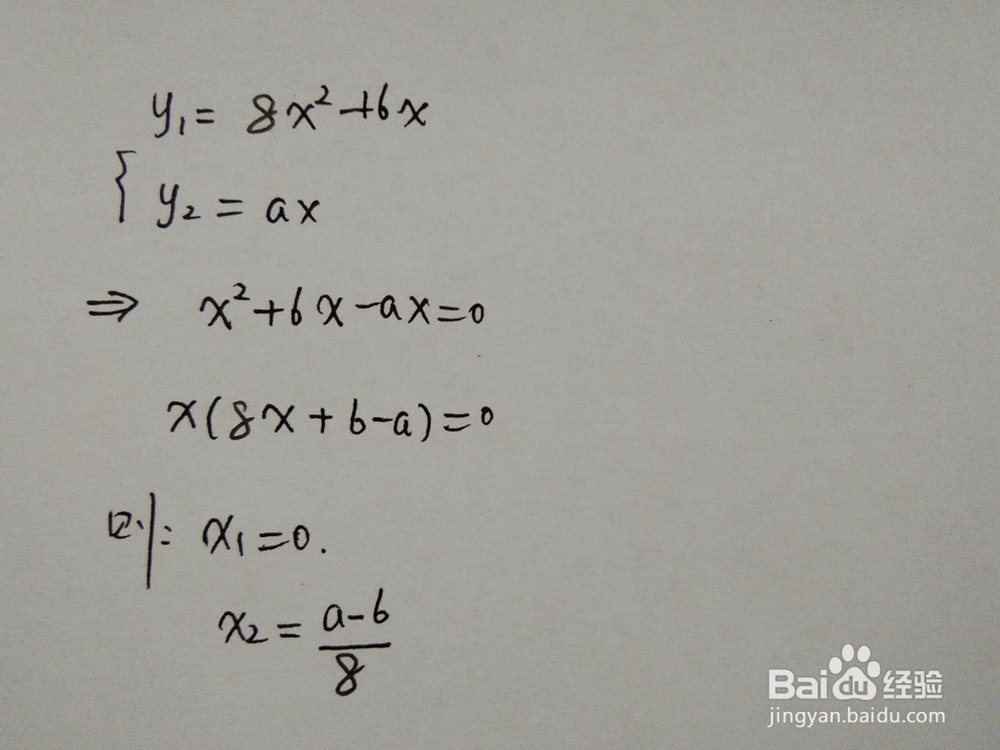 y₁ = 8x²+6x
{ y₂ = ax
⇒ x²+6x-ax=0
x(8x+6-a)=0
则: x₁=0.
x₂ = (a-6)/8
Baidu经验
jingyan.baidu.com